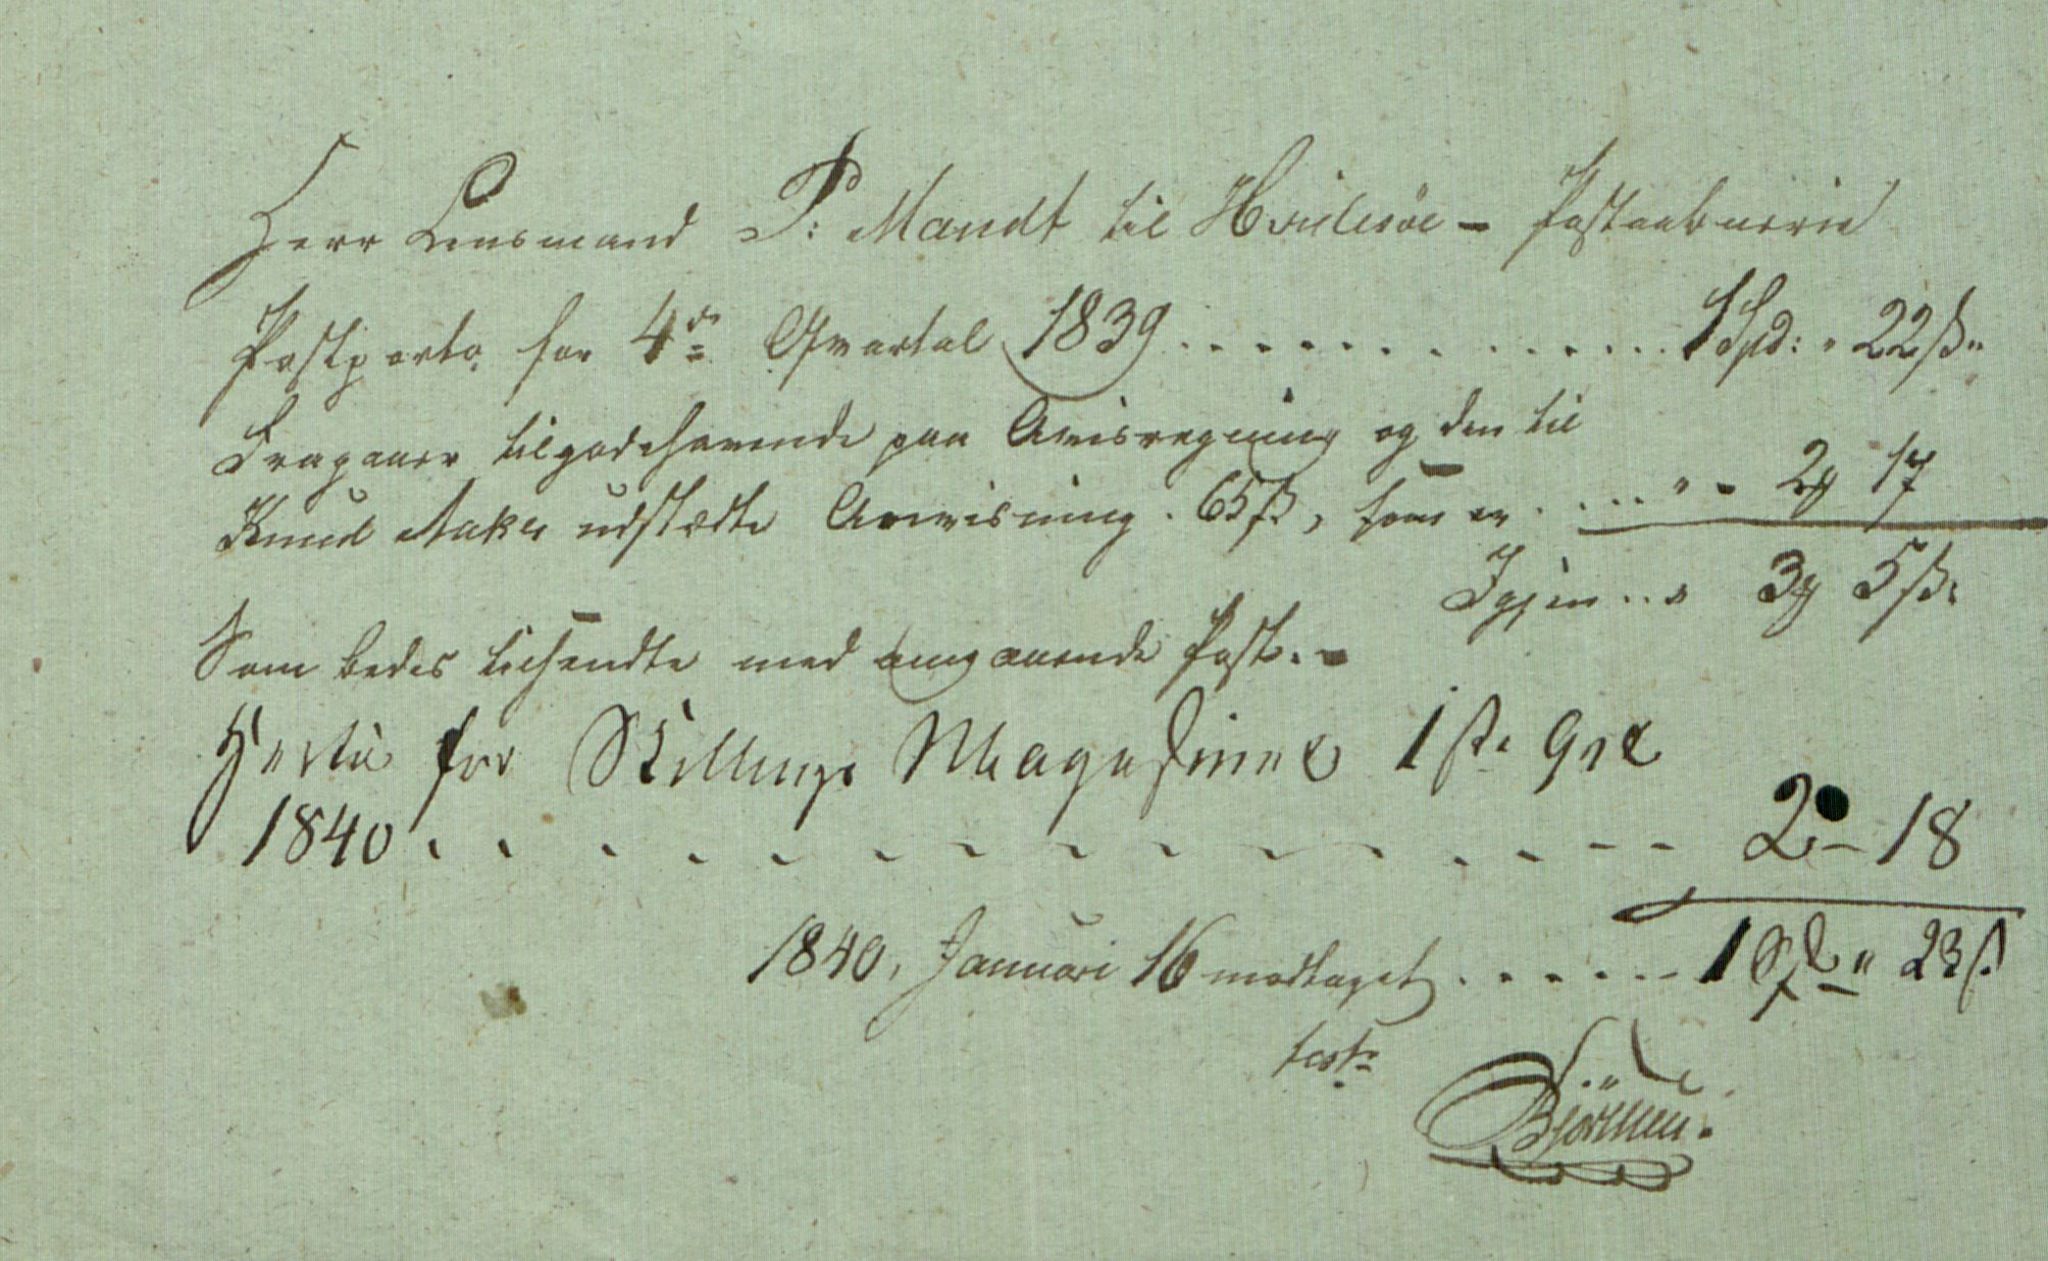 Herr Lensmand P: Mandt til Hvidesøe - Postaabnerie
Postporto for 4de Qvartal 1839 . . . . . . . . . . . . . 1 Spd: " 22 ß "
Fragaaer tilgodehavende paa Avisregning og den til
Knud Aaker udstædte Anvisning . 65 ß, som er . . . . . " - 2 ₰ 17
Igjen . . " 3 ₰ 5 ß.
Som bedes tilsendte med omgaaende Post. -
Hertil for Skillings Magasinet 1ste Qrl
1840 . . . . . . . . . . . . . . . 2 - 18
1840, Januari 16 modtaget . . . . . . 1 Spd " 23 ß
test: